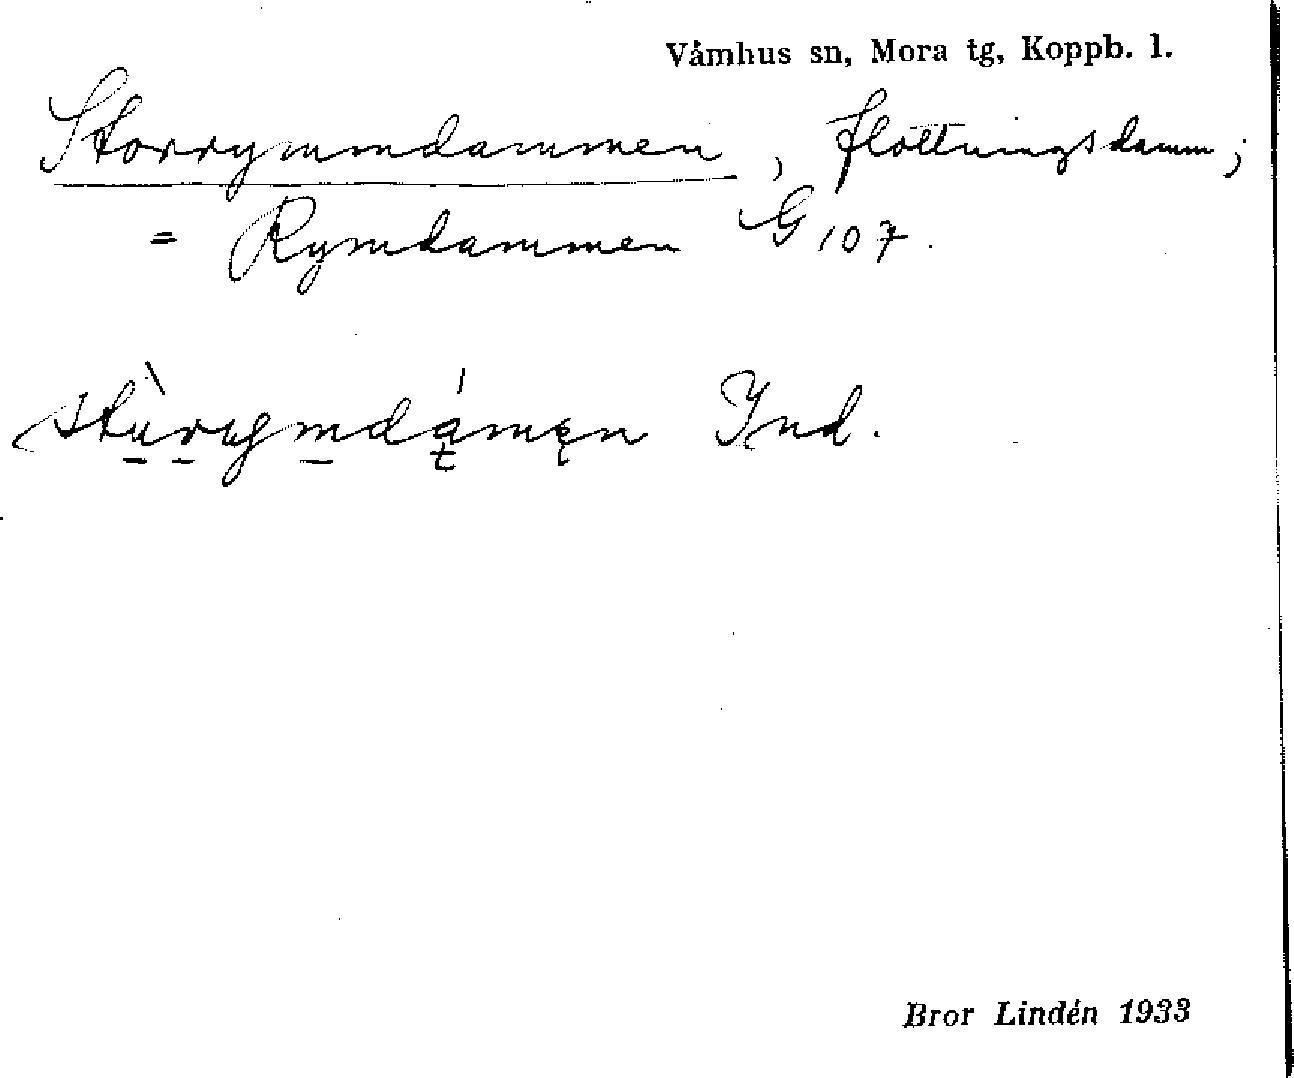 Våmhus sn, Mora tg, Koppb. l.
Storrymmdammen, flottningsdamm;
= Rymdammen G 107.
Ind.
Bror Lindén 1933